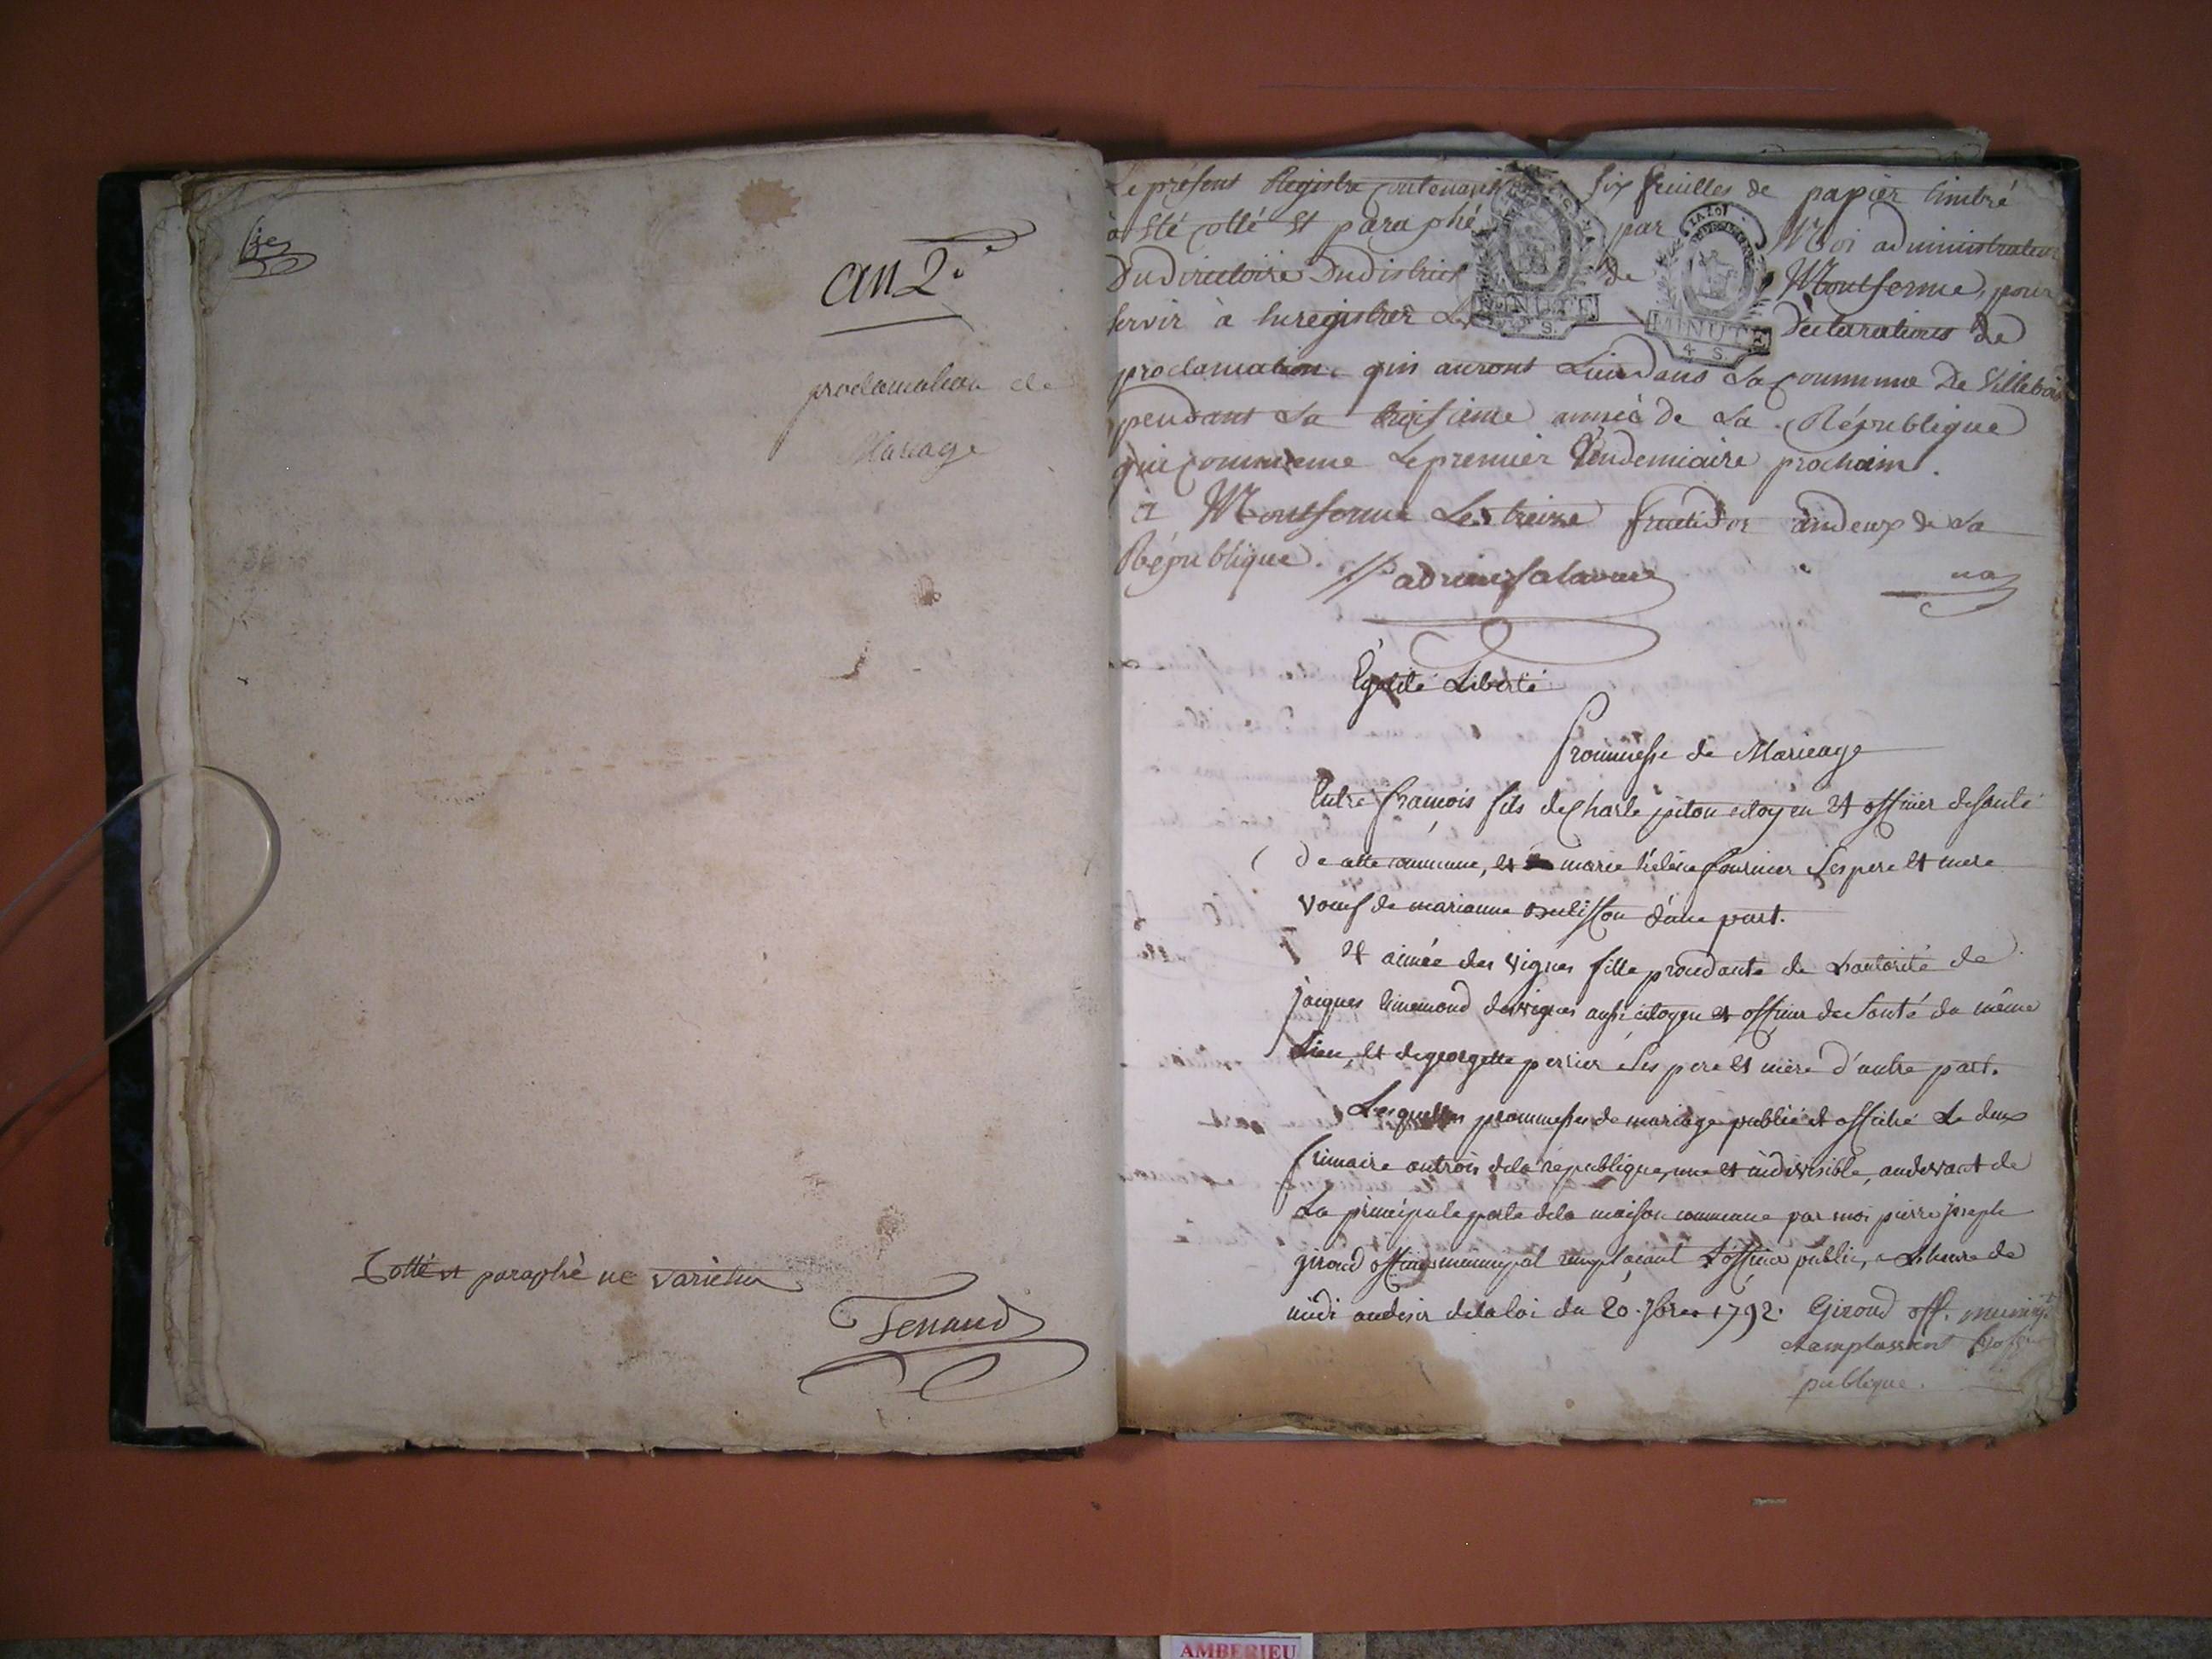 an 2.e
proclamation de
Mariage
Cotté et paraphé ne varietur
Tenand
Le présent Registre contenant six feuilles de papier timbré
a Eté cotté et paraphé par Moi administrateur
Du directoire Du district de Montferme, pour
servir à Enregistrer Les Déclarations de
proclamation qui auront Lieu Dans La Commune De Villebois
pendant La troisieme année de La République
qui commence Le premier Vendemiaire prochain.
à Montferme Le treize fructidor an deux de La
République.
na
MINUTE
S.
MINUTE
4 S.
Égalité Liberté
Prommesse de Marieage
Entre françois fils de Charle piton citoyen et officier de santé
de cette commune, et marie héleine fournier Ses pere et mere
Veuf de marianne d'une part.
et aimée des Vignes fille de Lautorité de
jacques desvignes aussi citoyen et officier de Santé du même
Lieu, et de georgette perrier Ses pere et mère d'autre part.
Lesquelles prommesses de mariage publié et affiché Le deux
frimaire an trois de la republique, une et indivisible, au devant de
La principale porte de la maison commune par moi pierre joseph
giroud officier municipal remplacant L'officier public, a Lheure de
midi au desir de la loi du 20. 7bre 1792. Giroud off. municip
ramplassant
publique.
AMBERIEU